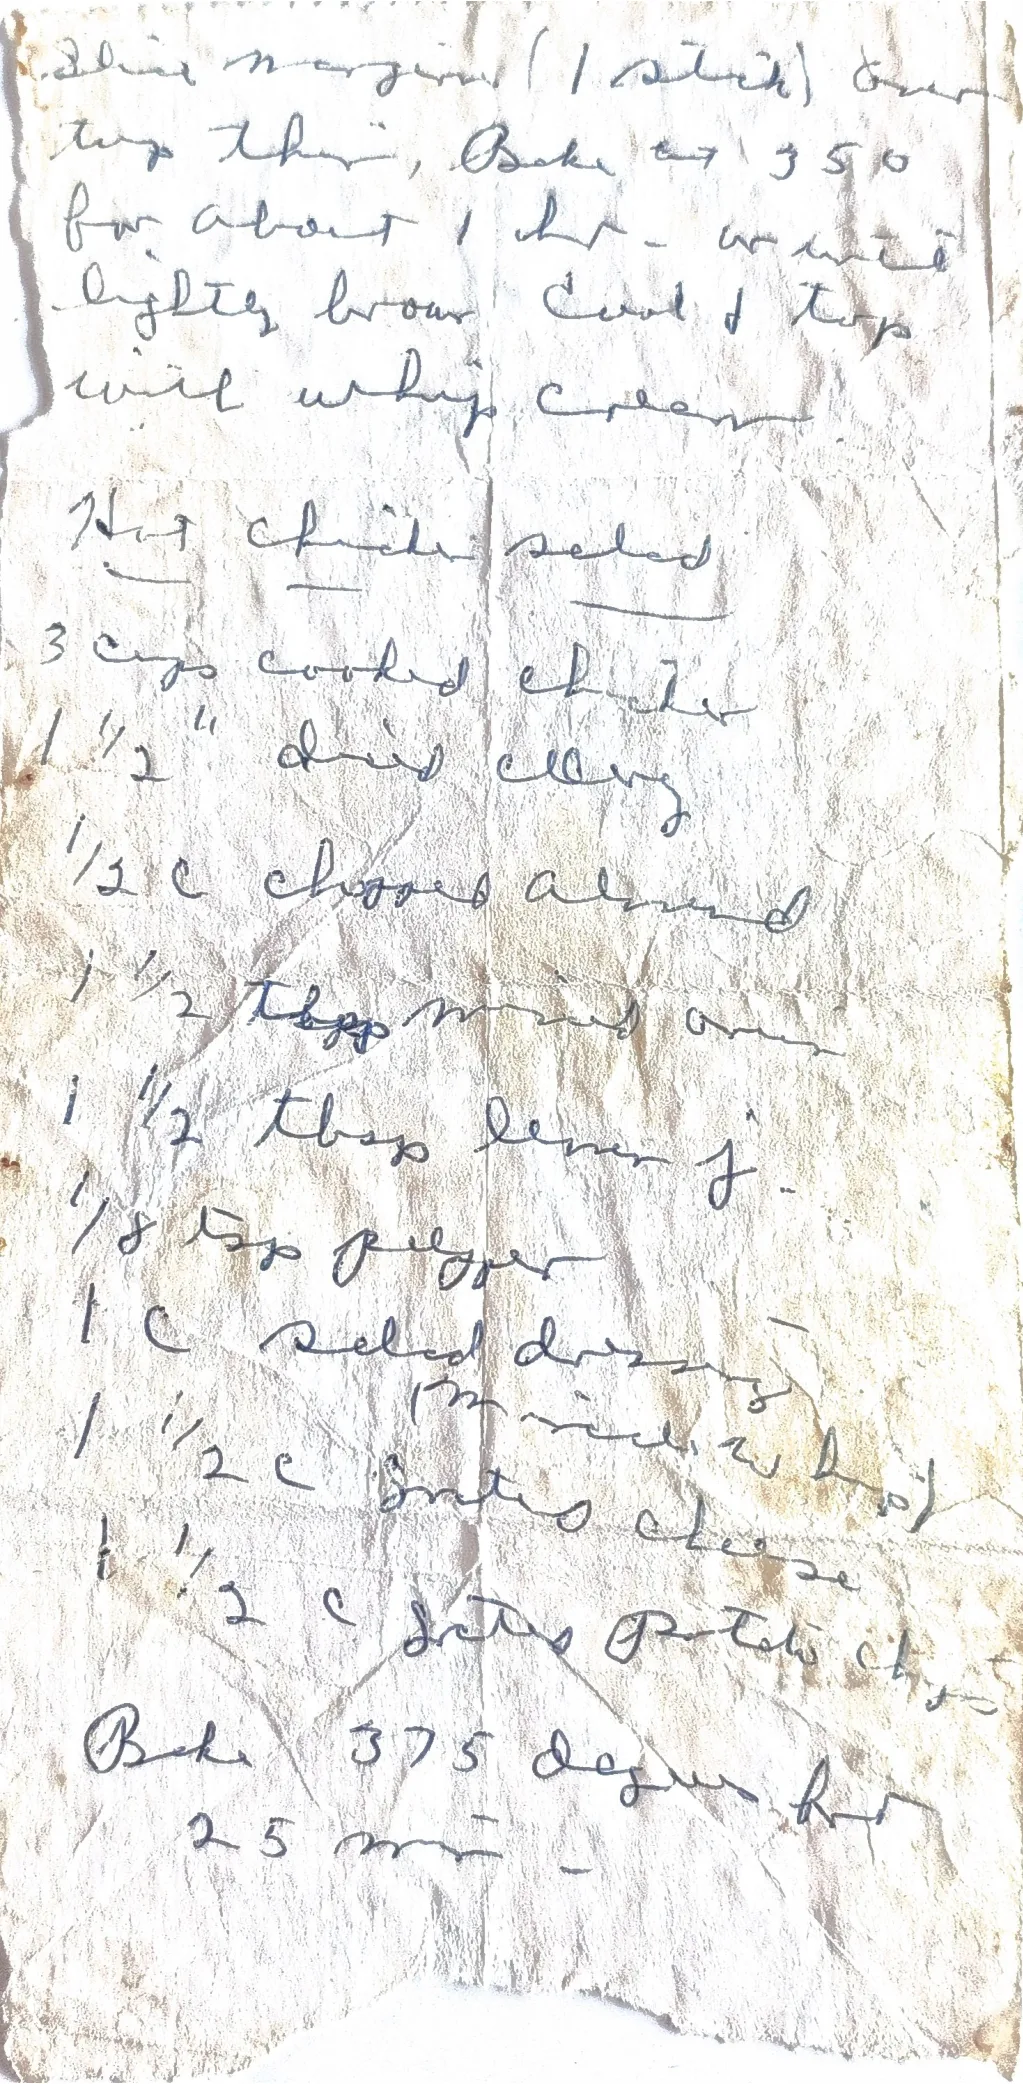 Slice margine (1 stick) over
top thin, Bake at 350
for about 1 hr - or until
lightly brown Cool & top
with whip cream
Hot chicken salad
3 cups cooked chicken
1 1/2 " diced celery
1/2 c chopped almond
1 1/2 tbsp minced onion
1 1/2 tbsp lemon j.
1/8 tsp pepper
1 c salad dressing
(Miracle whip)
1 1/2 c grated cheese
1 1/2 c grated Potato chips
Bake 375 degrees for
25 min -